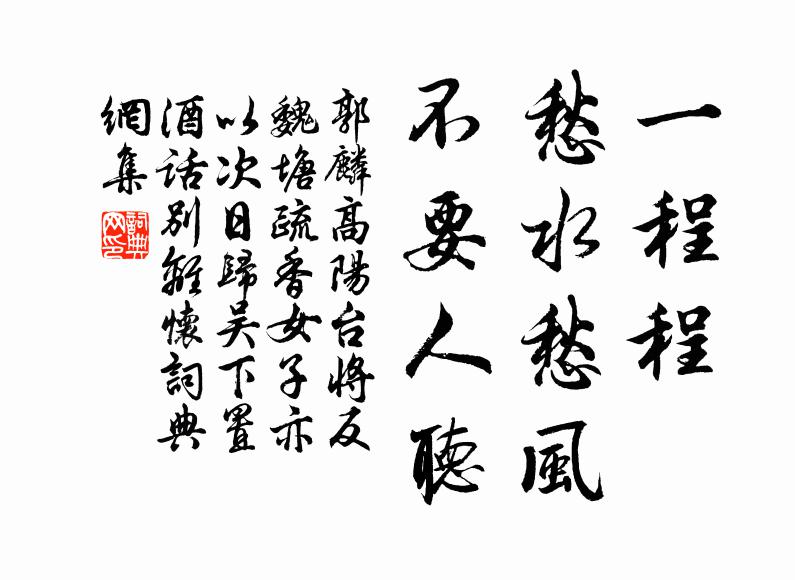 一程程
愁水愁風
不要人聽
郭麟高陽台將反
魏塘疏香女子亦
以次日歸吴下置
酒話別離懷詞典
網集
詞典網印